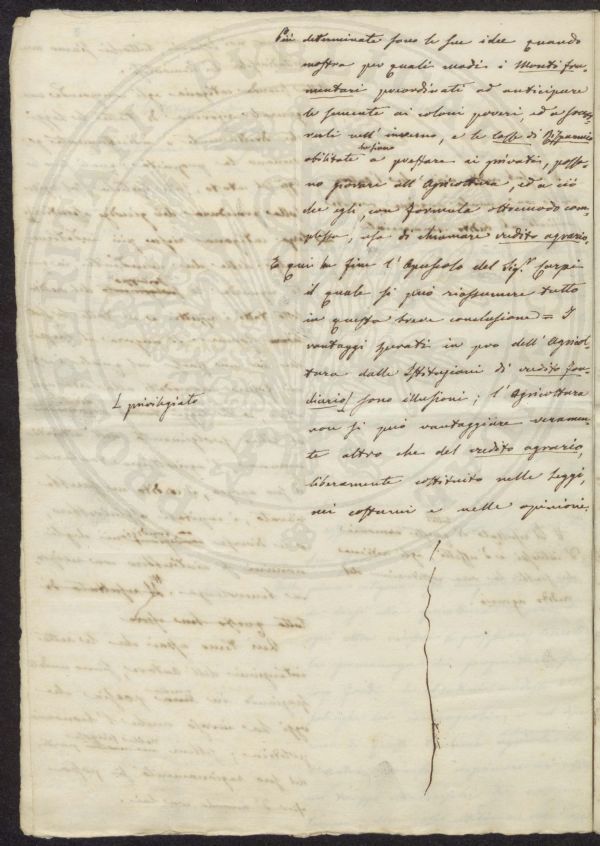 Più determinate sono le sue idee quando
mostra per quali modi i Monti fru-
mentari preordinati ad anticipare
le semente ai coloni poveri, ed a sovve-
nirli nell'inverno, e le Casse di Risparmio
abilitate a prestare ai privati, posso-
no giovare all'Agricoltura, ed a ciò
che egli, con formula oltremodo com-
plessa, usa di chiamare credito agrario.
E qui ha fine l'Opuscolo del Sig.r Corpi
il quale si può riassumere tutto
in questa breve conclusione = I
vantaggi sperati in pro dell'Agricol-
tura dalle Istituzioni di credito fon-
diario sono illusioni; l'Agricoltura
L privilegiato
non si può vantaggiare veramen-
te altro che del credito agrario,
liberamente costituito nelle leggi,
nei costumi e nelle opinioni.